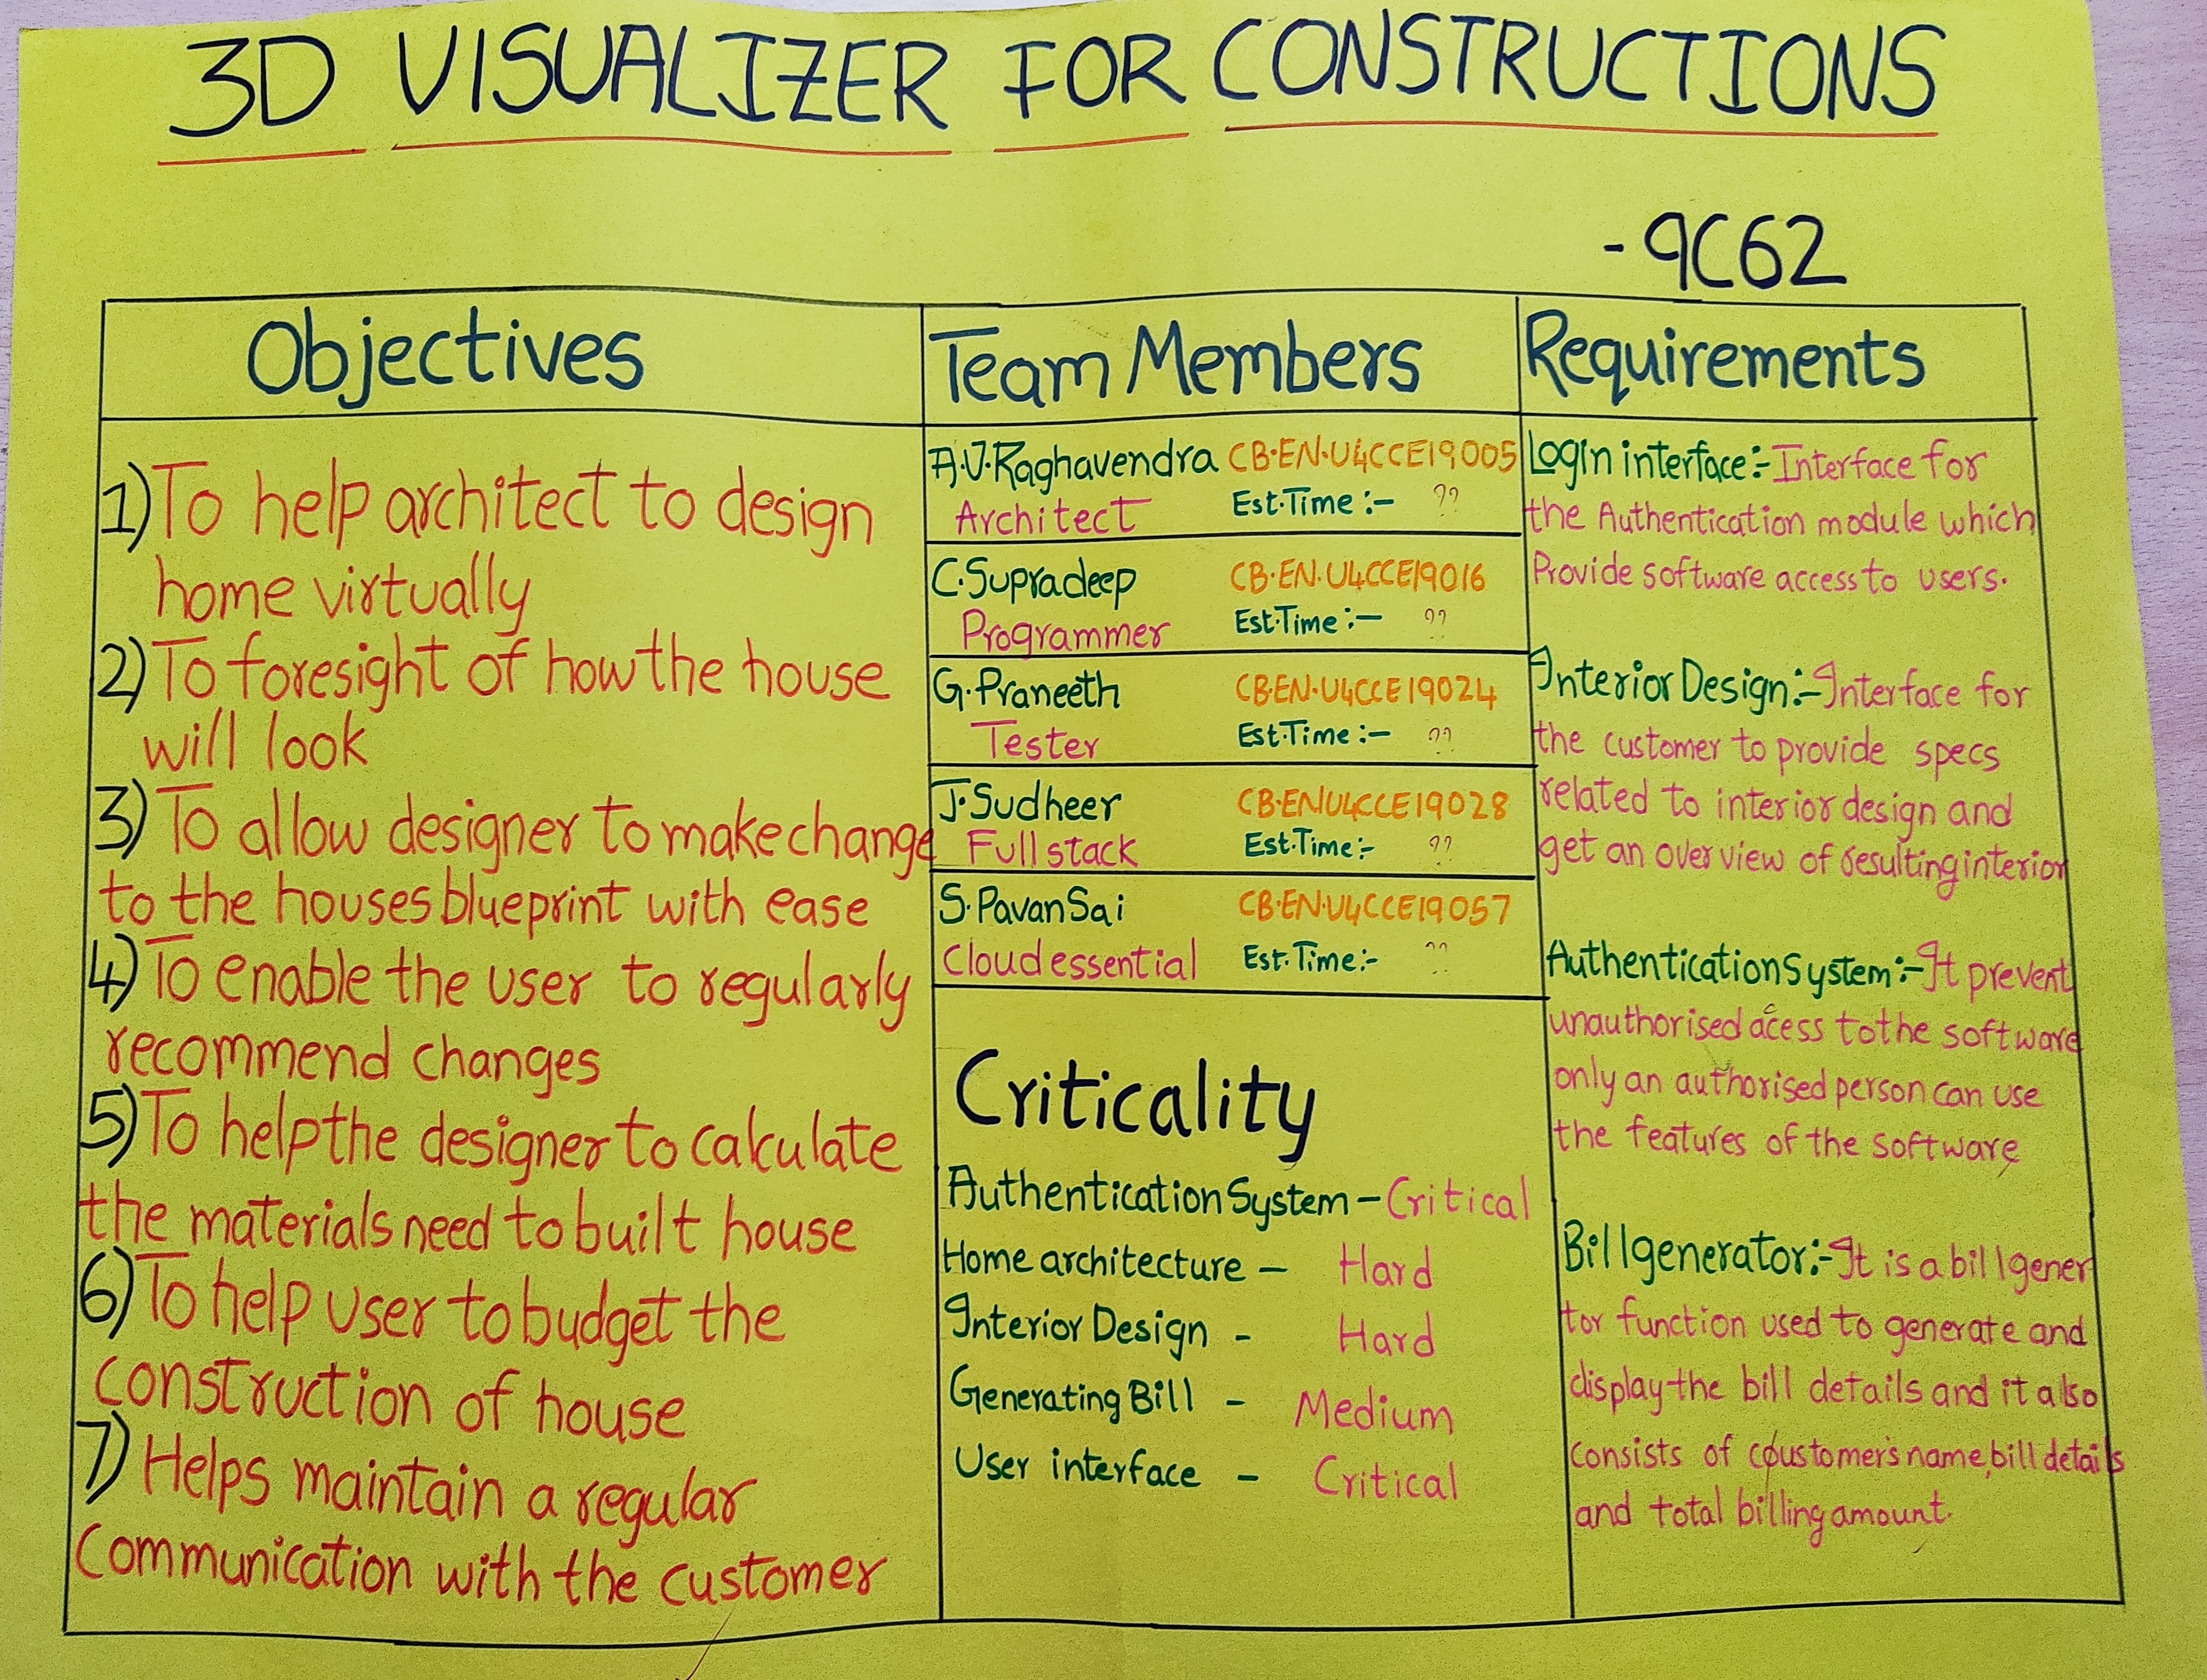 3D VISUALIZER FOR CONSTRUCTIONS
- 9C62
Objectives
1) To help architect to design
home virtually
2) To foresight of how the house
will look
3) To allow designer to make change
to the houses blueprint with ease
4) To enable the user to regularly
recommend changes
5) To help the designer to calculate
the materials need to built house
6) To help user to budget the
construction of house
7) Helps maintain a regular
Communication with the customer
Team Members
A.J.Raghavendra CB.EN.U4CCE19005
Architect Est.Time :- ??
C.Supradeep CB.EN.U4CCE19016
Programmer Est.Time :- ??
G.Praneeth CB.EN.U4CCE19024
Tester Est.Time :- ??
J.Sudheer CB.EN.U4CCE19028
Full stack Est.Time :- ??
S.Pavan Sai CB.EN.U4CCE19057
Cloud essential Est.Time :- ??
Criticality
Authentication System - Critical
Home architecture - Hard
Interior Design - Hard
Generating Bill - Medium
User interface - Critical
Requirements
Login interface :- Interface for
the Authentication module which
Provide software access to users.
Interior Design :- Interface for
the customer to provide specs
related to interior design and
get an over view of resulting interior
Authentication System :- It prevent
unauthorised acess to the software
only an authorised person can use
the features of the software
Bill generator :- It is a bill gener
tor function used to generate and
display the bill details and it also
consists of coustomer's name, bill details
and total billing amount.